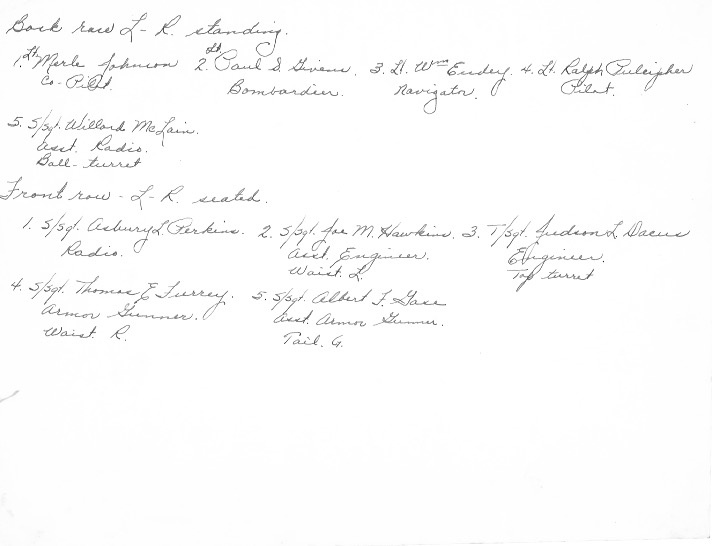 Back row L - R. standing.
1. Lt. Merle Johnson 2. Lt. Paul S Givens. 3. Lt. Wm Eudey. 4. Lt. Ralph Pulcipher
Co-Pilot. Bombardier. Navigator. Pilot.
5. S/Sgt. Willard McLain.
Asst. Radio.
Ball-turret
Front row - L-R. seated.
1. S/Sgt. Asbury L Perkins. 2. S/Sgt. Joe M. Hawkins. 3. T/Sgt. Judson L Dacus
Radio. Asst. Engineer. Engineer.
Waist L. Top turret
4. S/Sgt. Thomas E Turrey. 5. S/Sgt. Albert F. Gase
Armor Gunner. Asst. Armor Gunner.
Waist R. Tail. G.